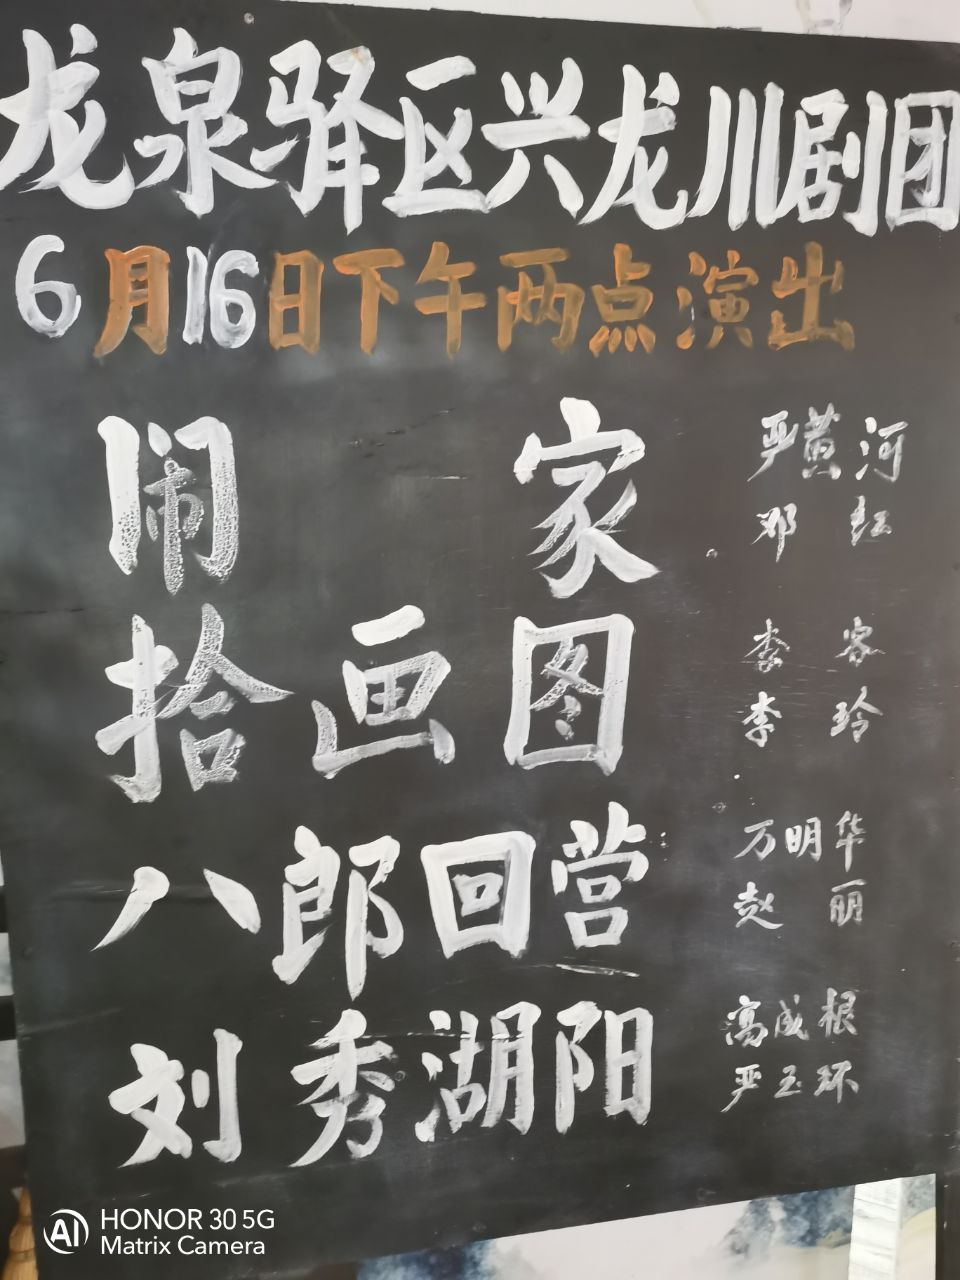 龙泉驿区兴龙川剧团
6月16日下午两点演出
闹家
严黄河
邓红
拾画图
李容
李玲
八郎回营
万明华
赵丽
刘秀湖阳
高成根
严玉环
HONOR 30 5G
Matrix Camera